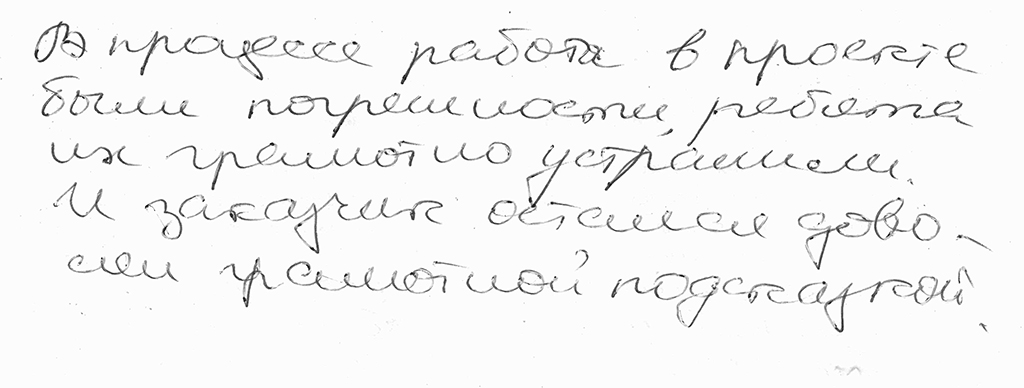 В процессе работа в проекте
были погрешности, ребята
их грамотно устранили.
И заказчик остался дово-
лен грамотной подсказкой.